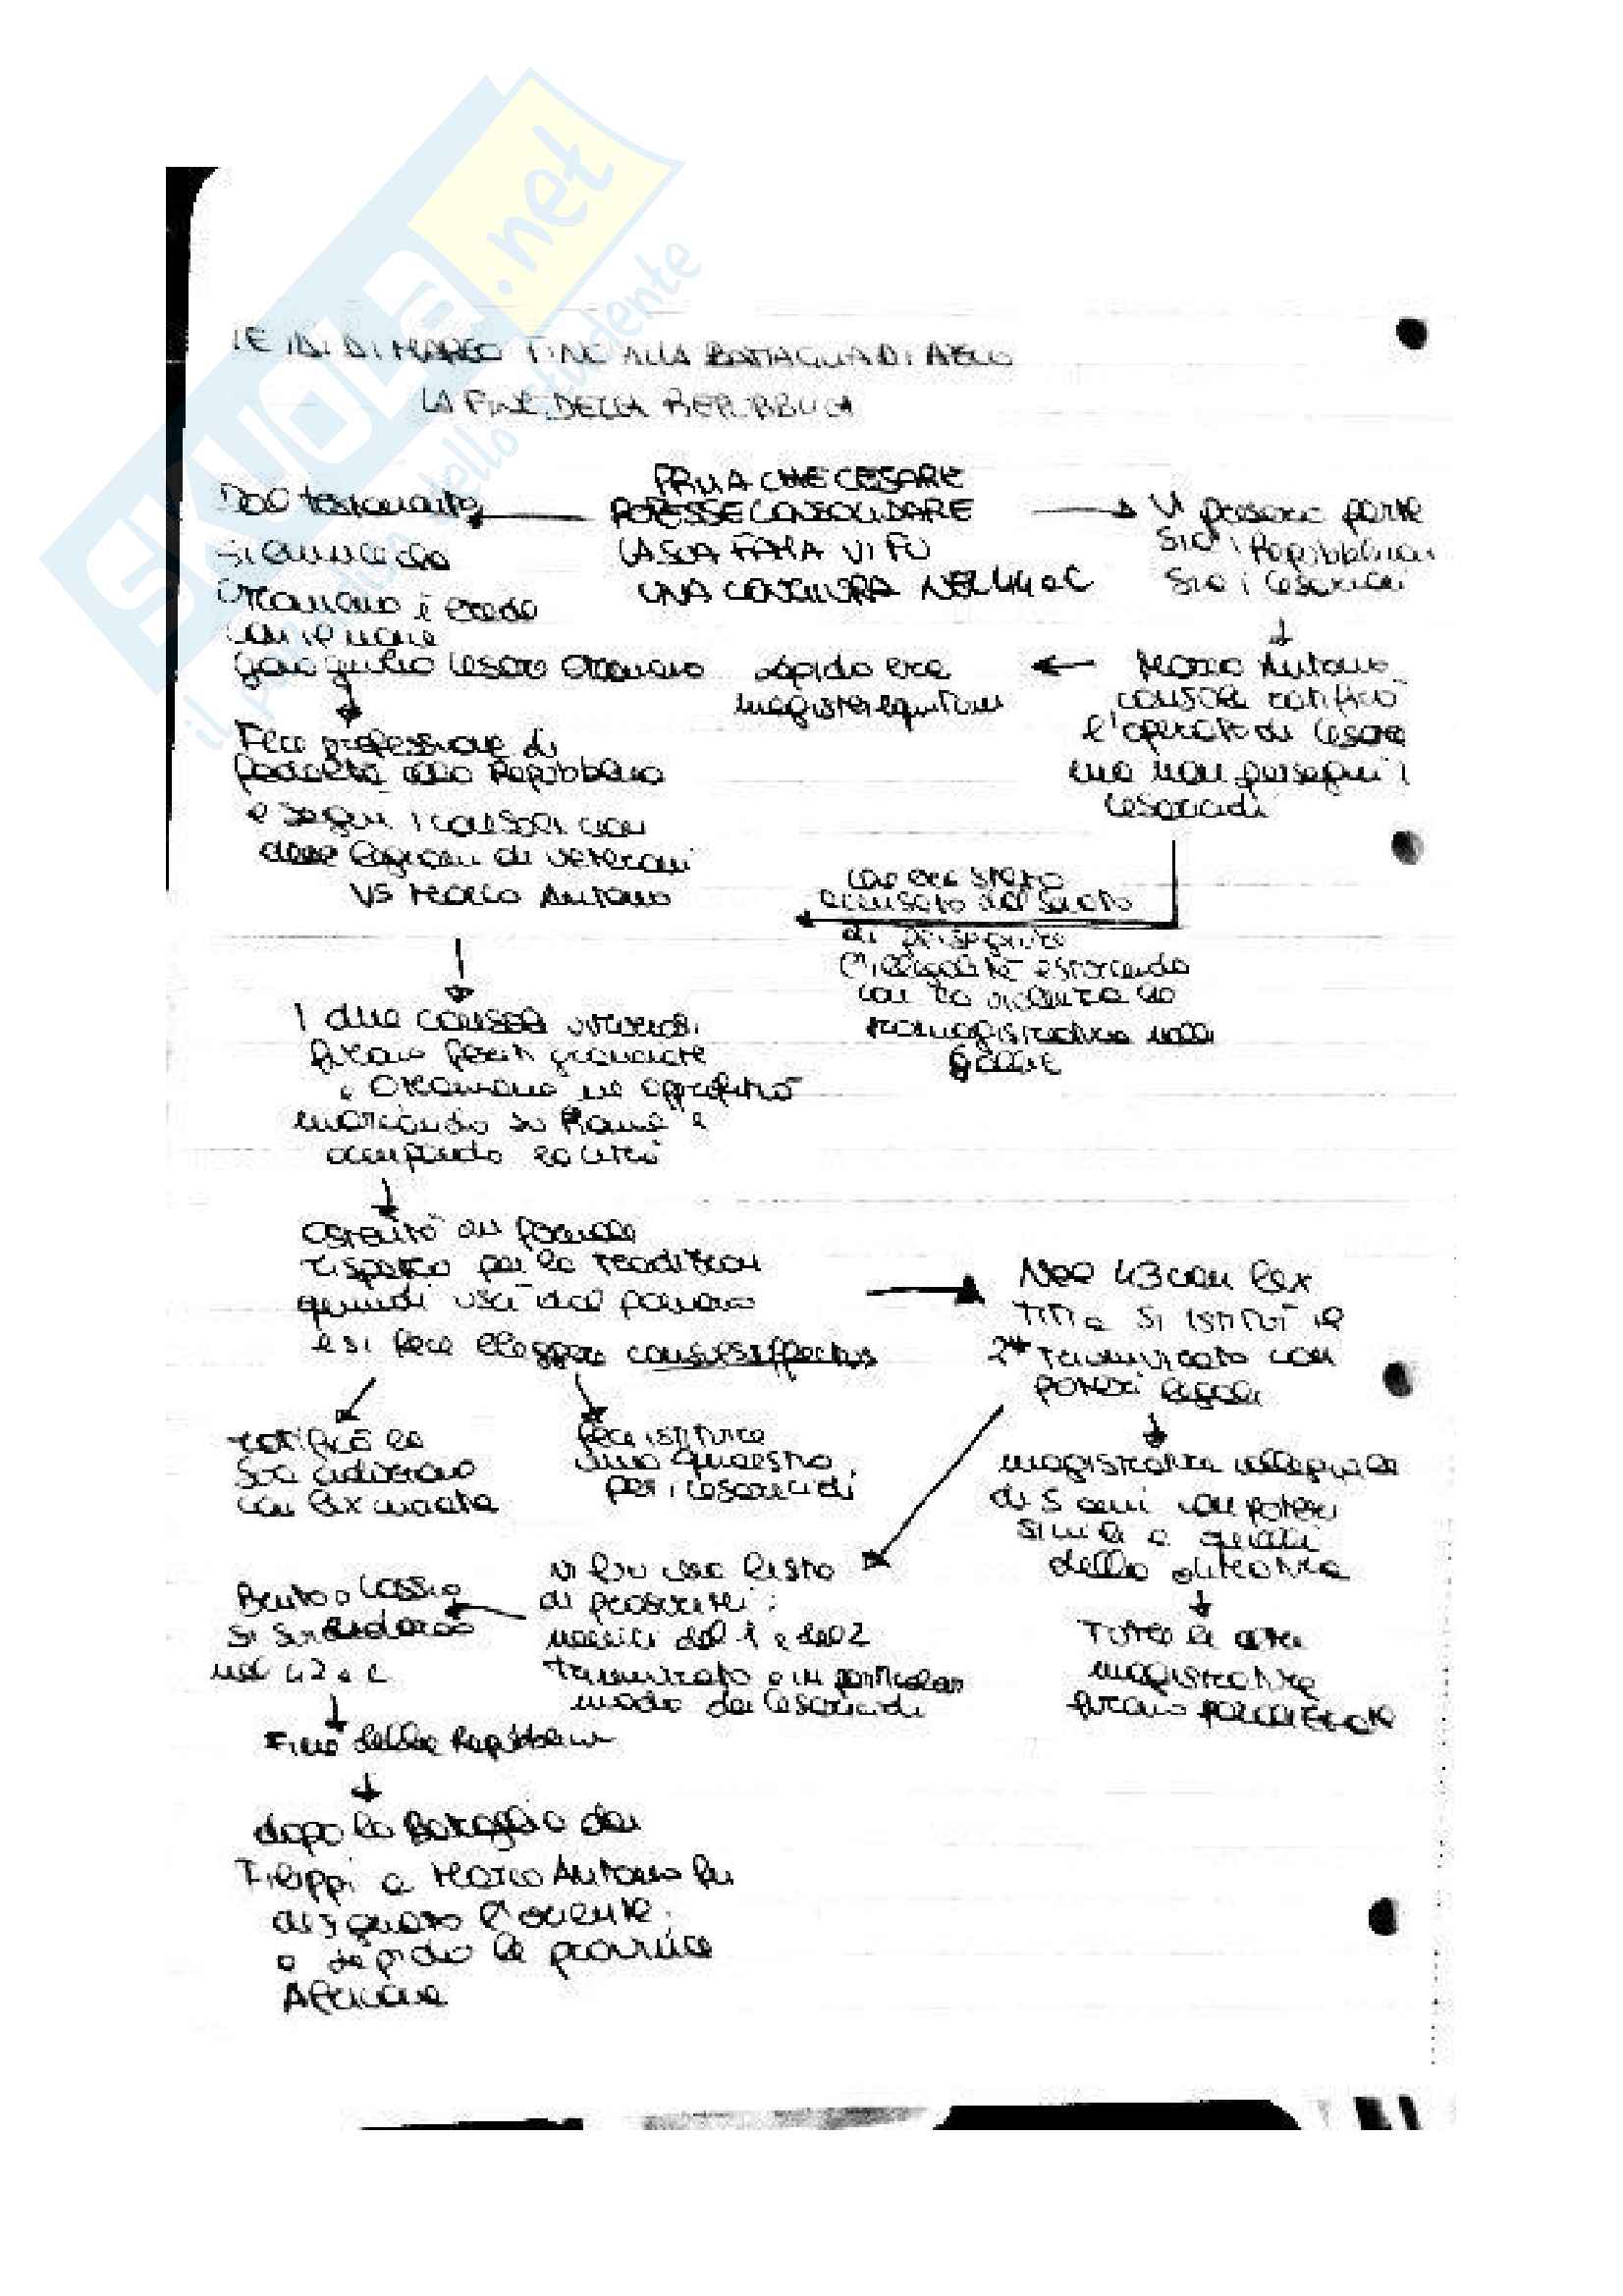 SKUOLa.net
il paradiso dello studente
LE IDI DI MARZO FINO ALLA BATTAGLIA DI AZIO
LA FINE DELLA REPUBBLICA
PRIMA CHE CESARE
POTESSE CONSOLIDARE
LA SUA FAMA VI FU
UNA CONGIURA NEL 44 aC
Dal testamento
si evince che
Ottaviano è erede
con il nome
gaio giulio Cesare Ottaviano
Fece professione di
fedeltà alla Repubblica
e seguì i consoli con
due legioni di veterani
VS Marco Antonio
Vi presero parte
sia i Repubblicani
sia i Cesariani
Marco Antonio
console ratificò
l'operato di Cesare
ma non perseguì i
cesaricidi
Lepido era
magister equitum
accusato dal Senato
di perseguire
l'illegalità estorcendo
con la violenza la
promagistratura nelle
gallie
I due consoli
furono feriti gravemente
e Ottaviano ne approfittò
marciando su Roma e
occupando la città
Ostentò un formale
rispetto per le tradizioni
quindi uscì dal pomerio
e si fece eleggere consul suffectus
ratificò la
sua adozione
con lex curiata
fece istituire
una quaestio
per i cesaricidi
Nel 43 con lex
Titia si istituì il
2° triumvirato con
poteri legali
magistratura collegiale
di 5 anni con poteri
simili a quelli
della dittatura
Tutte le altre
magistrature
furono paralizzate
Vi fu una lista
di proscritti:
nemici del 1 e del 2
triumvirato e in particolar
modo dei cesaricidi
Bruto e Cassio
si suicidarono
nel 42 a.C
Fine della Repubblica
dopo la Battaglia dei
Filippi a Marco Antonio fu
assegnato l'oriente
a Lepido le province
Africane